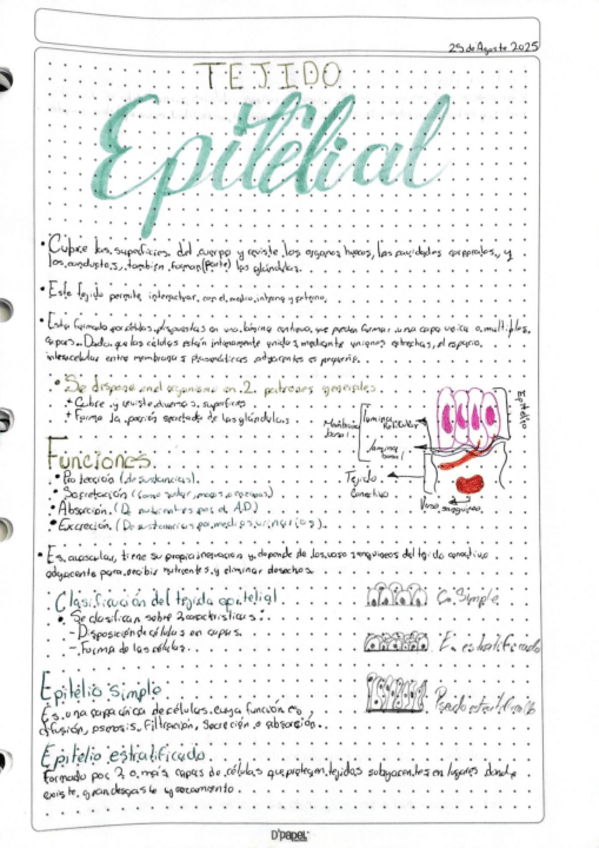 25 de Agosto 2025
TEJIDO
Epitelial
• Cubre las superficies del cuerpo y reviste los organos huecos, las cavidades corporales, y
los conductos, tambien forman (parte) las glándulas.
• Este tejido permite interactuar con el medio interno y externo.
• Esta formado por células dispuestas en una lámina continua, que pueden formar una capa unica o multiples
capas. Dado que las células están intimamente unidas mediante uniones estrechas, el espacio
intercelular entre membranas plasmáticas adyacentes es pequeño.
• Se dispone en el organismo en 2 patrones generales
+ Cubre y reviste diversas superficies
+ Forma la porción secretada de las glándulas
Epitelio
Membrana basal
lamina Reticular
lamina basal
Tejido conectivo
Vaso sanguineo
Funciones
• Protección (de sustancias).
• Secretación (como sudor, moco, enzimas)
• Absorción. (De nutrientes por el A.D)
• Excreción. (De sustancias por medios urinarios).
• Es avascular, tiene su propia inervacion y depende de los vasos sanguineos del tejido conectivo
adyacente para recibir nutrientes y eliminar desechos.
Clasificación del tejido epitelial
• Se clasifican sobre 2 caracteristicas:
- Disposición de células en capas.
- Forma de las células.
Simple
E. estratificado
Epitélio simple
Es una capa única de células cuya función es
difusión, osmosis, filtración, secreción o absorción.
Epitelio estratificado
Formado por 2 o más capas de células que protegen tejidos subyacentes en lugares donde
existe gran desgaste y rozamiento.
D'papel